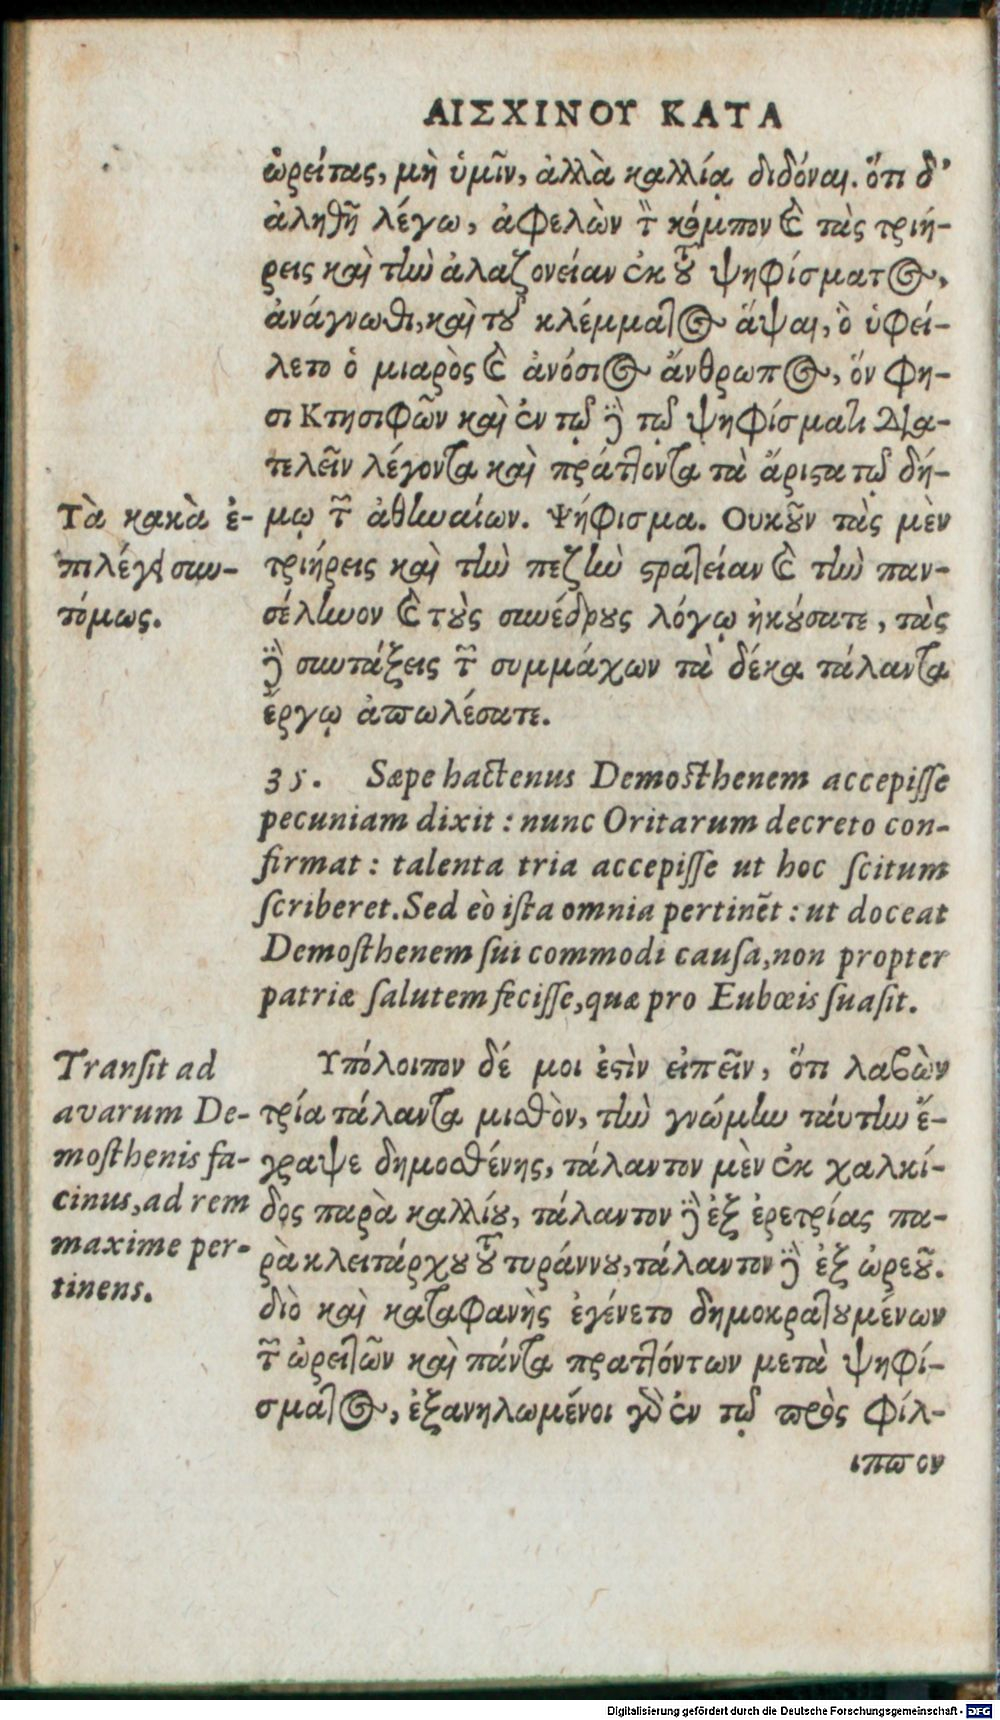 ΑΙΣΧΙΝΟΥ ΚΑΤΑ
ὠρείτας, μὴ ὑμῖν, ἀλλὰ καλλίᾳ διδόναι. ὅτι δ'
ἀληθῆ λέγω, ἀφελὼν τὸν κόμπον καὶ τὰς τριή-
ρεις καὶ τὴν ἀλαζονείαν ἐκ τοῦ ψηφίσματος,
ἀνάγνωθι, καὶ τοῦ κλέμματος ἅψαι, ὃ ὑφεί-
λετο ὁ μιαρὸς καὶ ἀνόσιος ἄνθρωπος, ὅν φη-
σι Κτησιφῶν καὶ ἐν τῷ δὲ τῷ ψηφίσματι δια-
τελεῖν λέγοντα καὶ πράττοντα τὰ ἄριστα τῷ δή-
μῳ τῶν ἀθηναίων. Ψήφισμα. Οὐκοῦν τὰς μὲν
τριήρεις καὶ τὴν πεζὴν στρατείαν καὶ τὴν παν-
σέληνον καὶ τοὺς συνέδρους λόγῳ ἠκούσατε, τὰς
δὲ συντάξεις τῶν συμμάχων τὰ δέκα τάλαντα
ἔργῳ ἀπωλέσατε.
Τὰ κακὰ ἐ-
πιλέγει συν-
τόμως.
35. Sæpe hactenus Demosthenem accepisse
pecuniam dixit : nunc Oritarum decreto con-
firmat : talenta tria accepisse ut hoc scitum
scriberet. Sed eò ista omnia pertinẽt : ut doceat
Demosthenem sui commodi causa, non propter
patriæ salutem fecisse, quæ pro Eubœis suasit.
Transit ad
avarum De-
mosthenis fa-
cinus, ad rem
maxime per-
tinens.
Υπόλοιπον δέ μοι ἐστὶν εἰπεῖν, ὅτι λαβὼν
τρία τάλαντα μισθὸν, τὴν γνώμην ταύτην ἔ-
γραψε δημοσθένης, τάλαντον μὲν ἐκ χαλκί-
δος παρὰ καλλίου, τάλαντον δὲ ἐξ ἐρετρίας πα-
ρὰ κλειτάρχου τοῦ τυράννου, τάλαντον δὲ ἐξ ὠρεοῦ.
διὸ καὶ καταφανὴς ἐγένετο δημοκρατουμένων
τῶν ὠρειτῶν καὶ πάντα πραττόντων μετὰ ψηφί-
σματος, ἐξανηλωμένοι γὰρ ἐν τῷ πρὸς φίλ-
ιππον
Digitalisierung gefördert durch die Deutsche Forschungsgemeinschaft - DFG